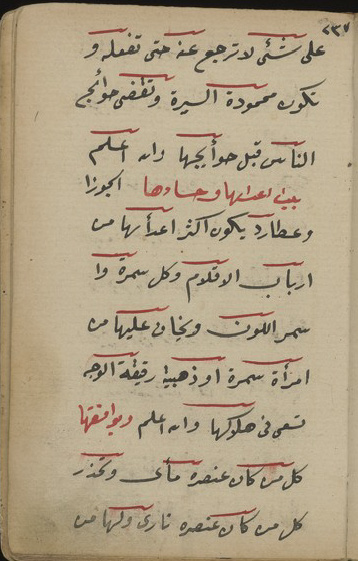 ٢٣٧
على شئ لا ترجع عنه حتى تفعله و
تكون محمودة السيرة وتقضى حوائج
الناس قبل حوائجها والله اعلم
بيان اعدائها وحسادها الجوزا
وعطارد يكون اكثر اعدائها من
ارباب الاقلام وكل سمرة وا
سمر اللون ويخاف عليها من
امرأة سمرة او ذهبية رقيقة الوجه
تسعى فى هلاكها والله اعلم ويوافقها
كل من كان عنصره مائى وتحذر
كل من كان عنصره نارى ولها من